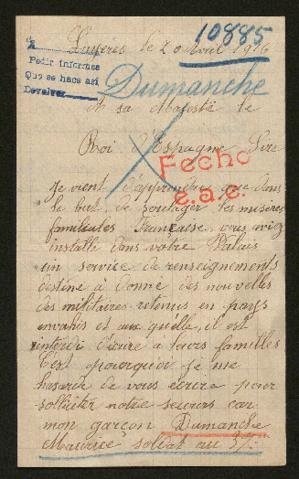 10885
le 20 Avril 1916
Pedir informes
Que se hace así
Devolver
Dumanche
A sa Majesté le
Roi d'Espagne Sire
Fecho
e.a.c.
Je vient d'apprendre que dans
le but de soulager les miseres
familiales Française vous aviez
installé dans votre Palais
un service de renseignements
destiné à donné des nouvelles
des militaires retenus en pays
envahis et auquélle il est
interdi d'écrire a leurs familles
C'est pourquoi je me
hasarde de vous écrire pour
solliciter votre secours car
mon garçon Dumanche
Maurice soldat au